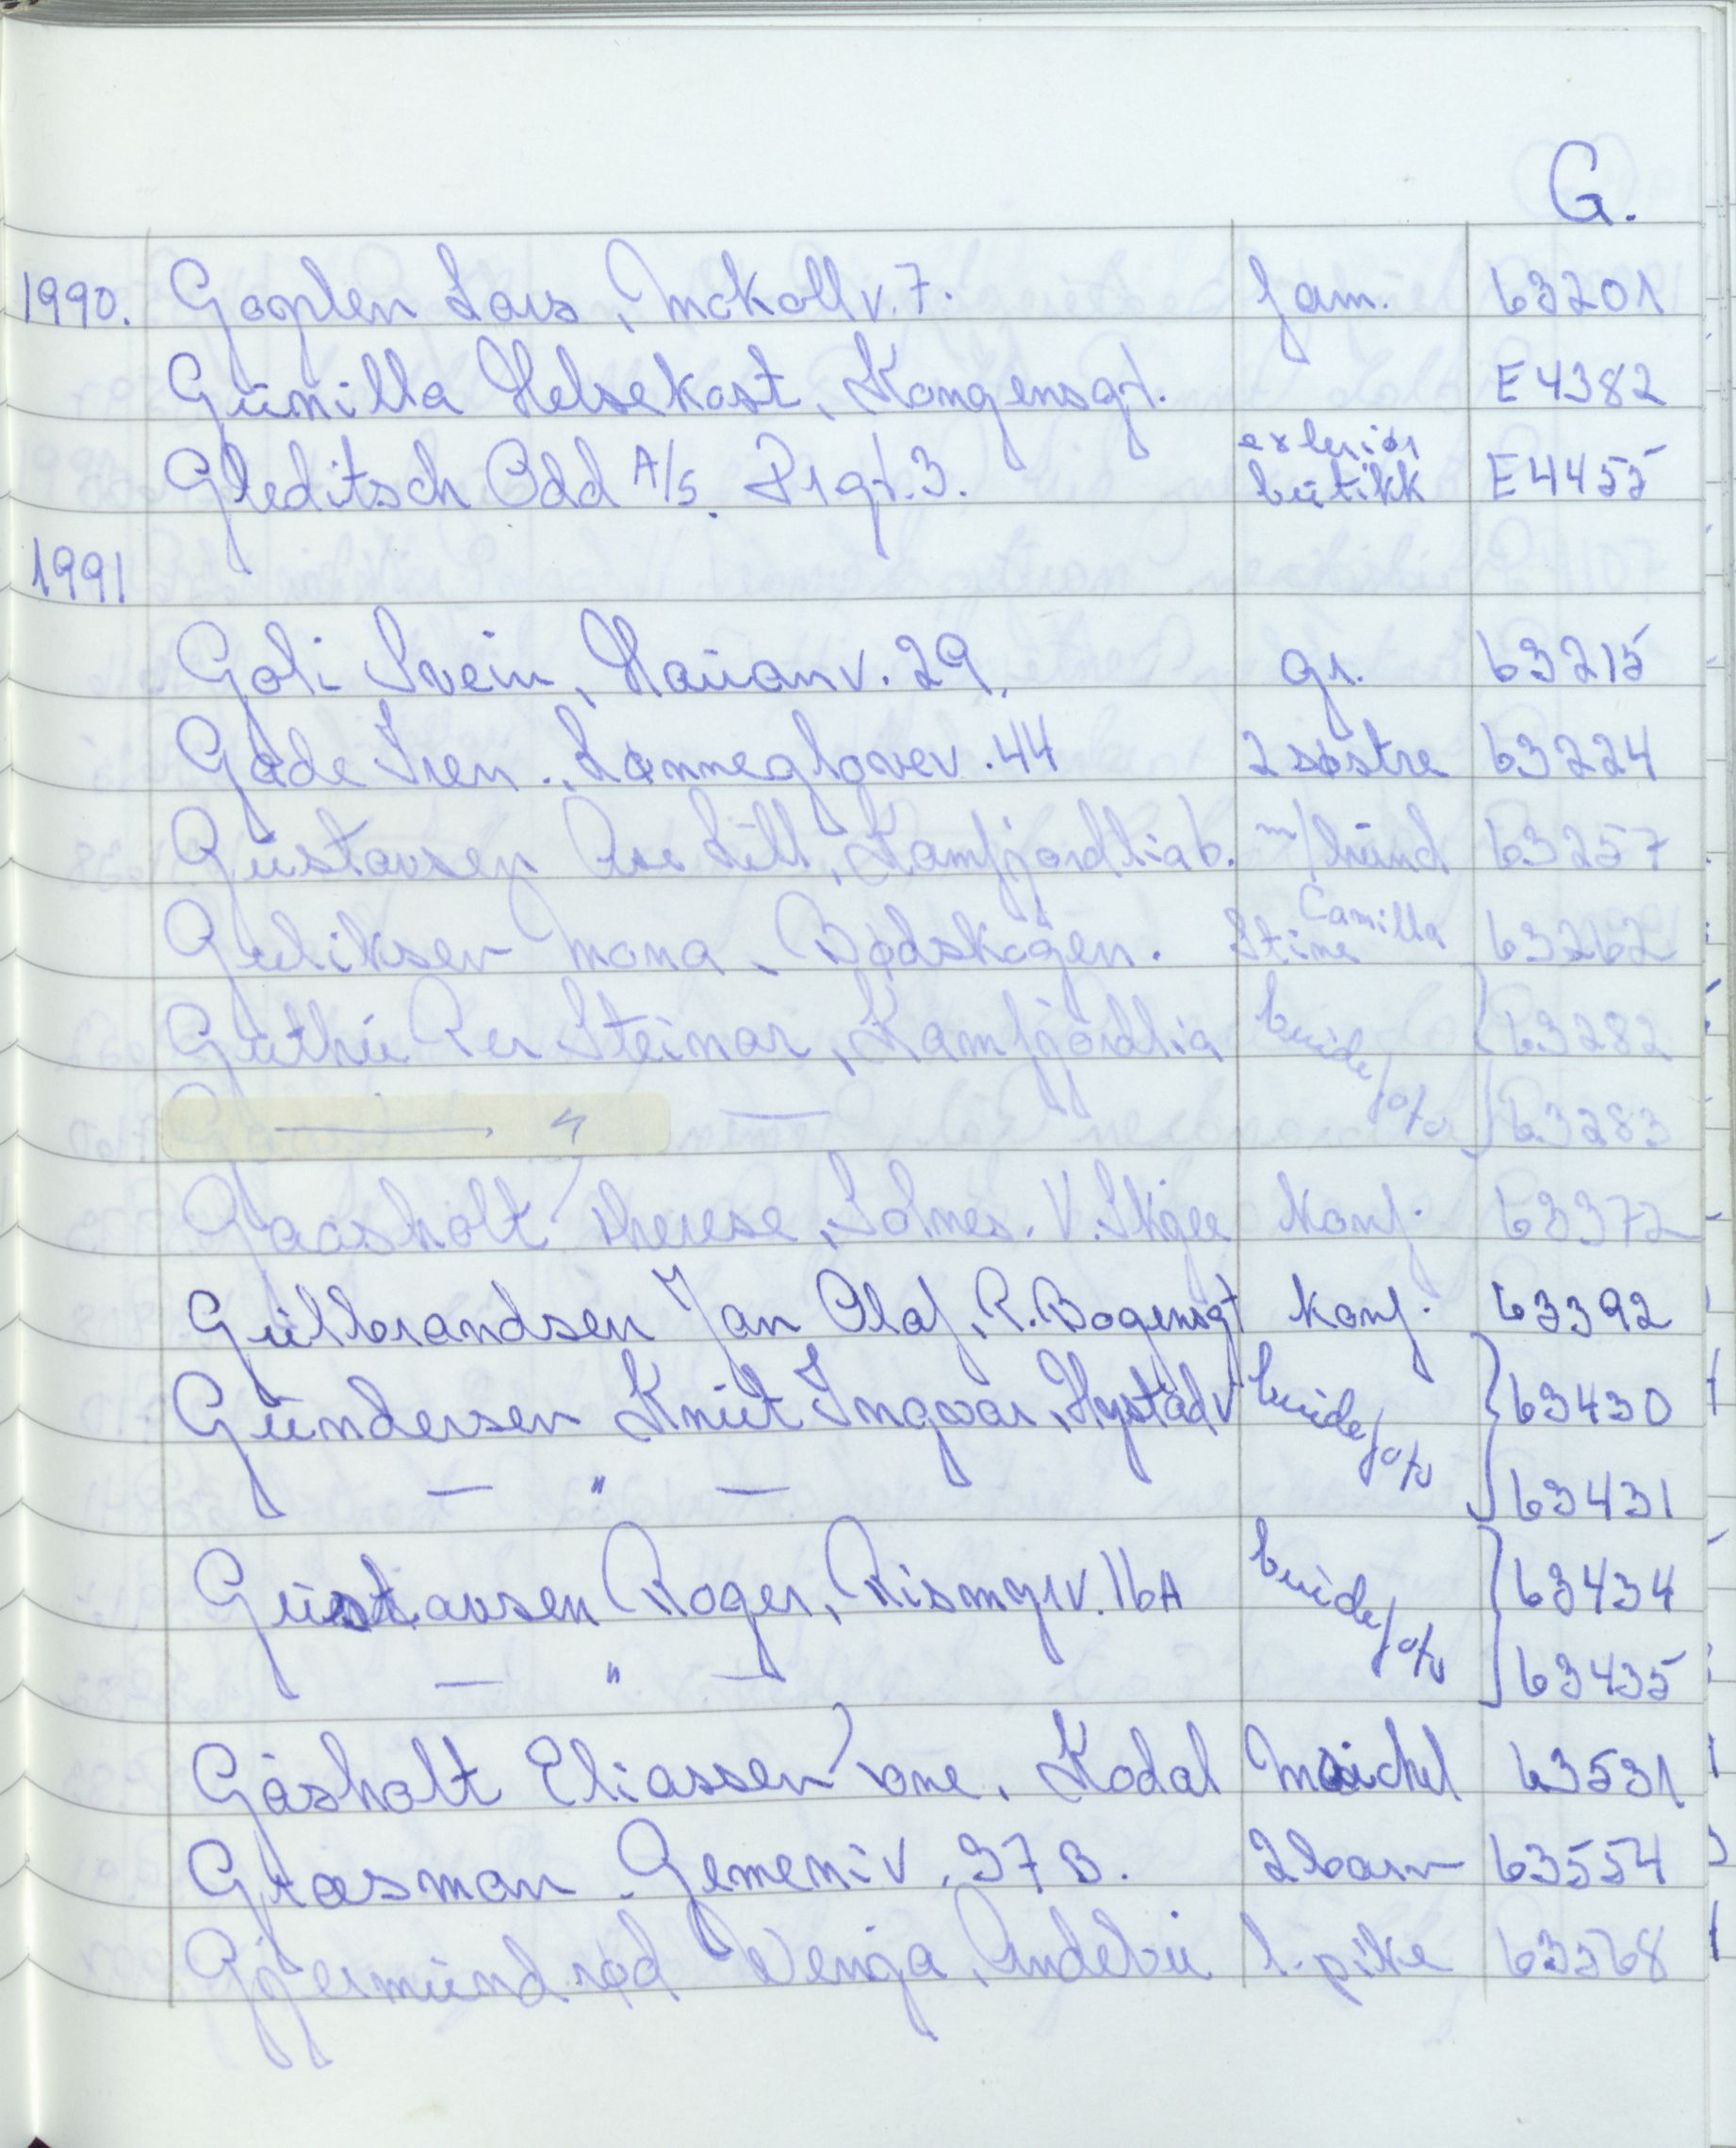 G.
1990. Goplen Lars, Mokollv. 7. fam. 63201
Gunilla Helsekost, Kongensgt. E4382
exteriør
Gleditsch Odd A/S. Prgt. 3. butikk E4455
1991
Goli Svein, Hauanv. 29, gr. 63215
Gade Iren. Lønnegløvev. 44 2 søstre 63224
Gustavsen Åse Lill, Kamfjordlia 6. m/hund 63257
Camilla
Guliksen Mona, Bødskogen. Stine 63262
Guthu Per Steinar, Kamfjordlia brude/o/v 63282
— " — 63283
Gaasholt Therese, Solnes. V. Skjee Konf. 63372
Gulbrandsen Jan Olaf, R. Bogensgt konf. 63392
Gundersen Knut Ingvar, Hystadv brude/o/v 63430
— " — 63431
Gustavsen Roger, Rismyrv. 16A brude/o/v 63434
— " — 63435
Gåsholt Eliassen Tone, Kodal Maichel 63531
Grasman, Gemeniv. 37 B. 2 barn 63554
Gjermundrød Wenja, Andebu l. pike 63568